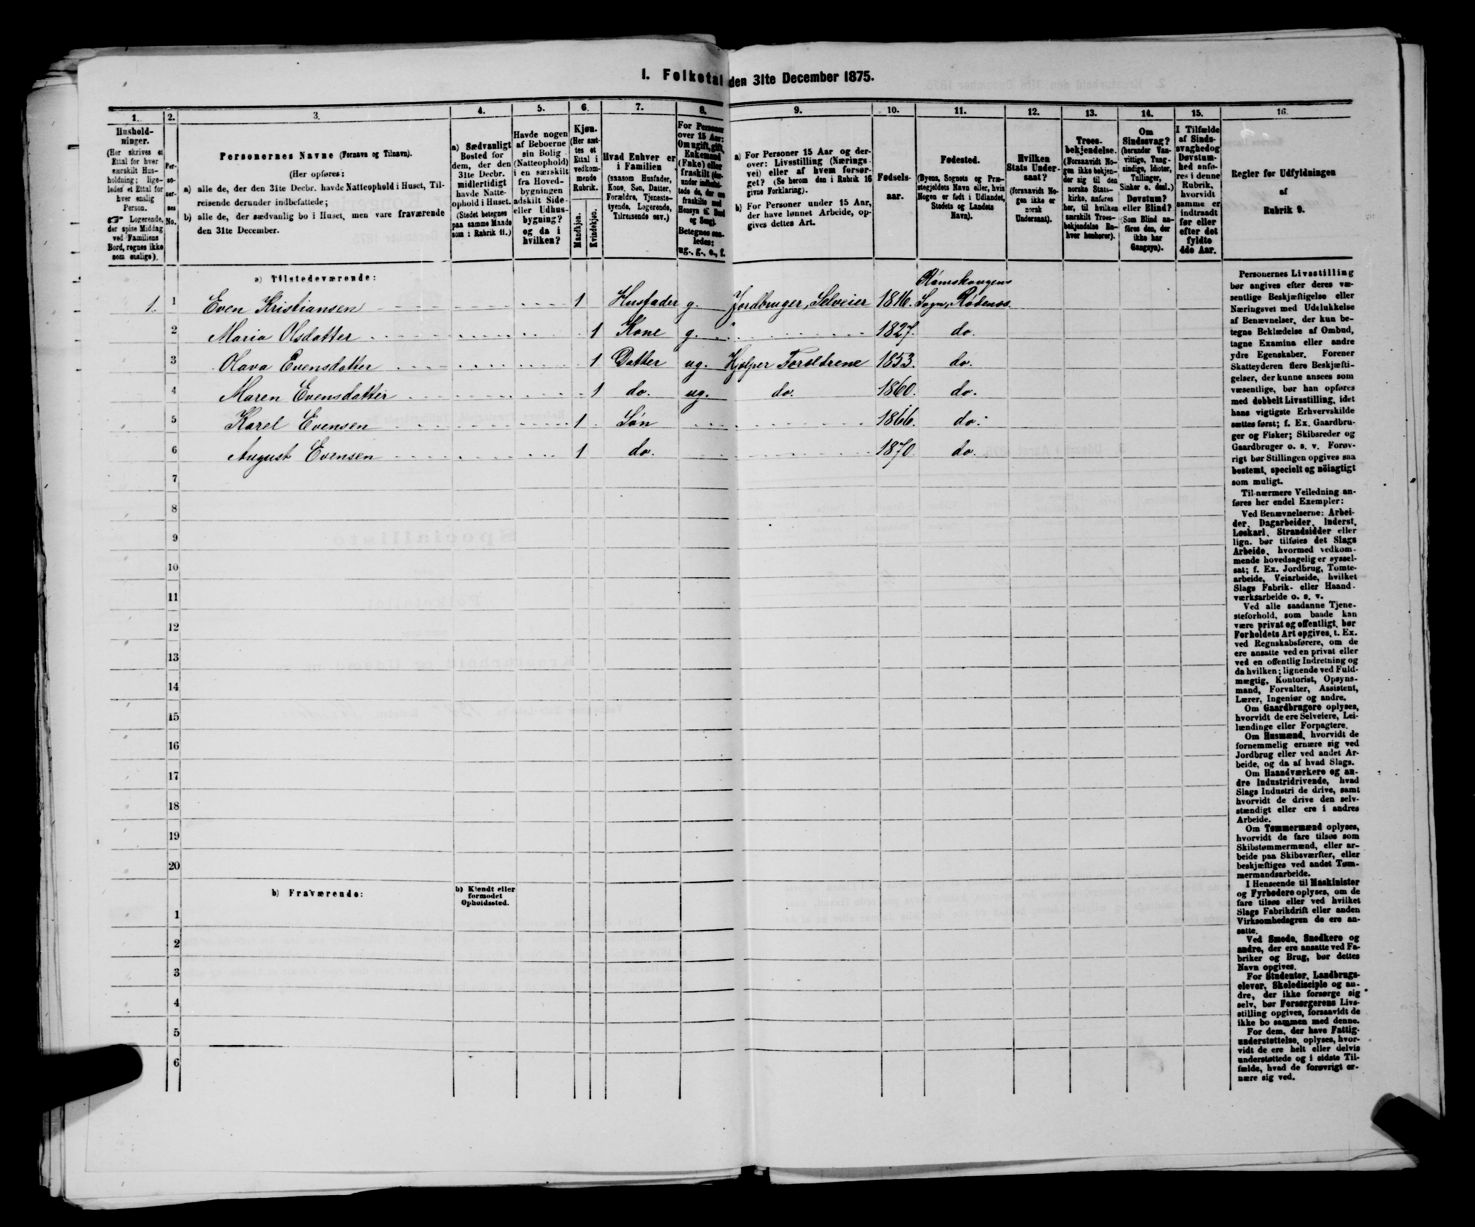 I. Folketal den 31te December 1875.
1. 2. 3. 4. 5. 6. 7. 8. 9. 10. 11. 12. 13. 14. 15. 16.
Personernes Navne (Fornavn og Tilnavn).
(Her opføres:)
a) alle de, der den 31te Decbr. havde Natteophold i Huset, Tilreisende derunder indbefattede;
b) alle de, der sædvanlig bo i Huset, men vare fraværende den 31te December.
a) Sædvanligt Bosted for dem, der den 31te Decbr. midlertidigt havde Natteophold i Huset.
Havde nogen af Beboerne sin Bolig (Natteophold) i en særskilt fra Hovedbygningen adskilt Side- eller Udhusbygning? og da i hvilken?
Kjøn.
Mandkjøn. Kvindekjøn.
Hvad Enhver er i Familien
a) For Personer 15 Aar og derover: Livsstilling (Næringsvei) eller af hvem forsørget? (Se herom den i Rubrik 16 givne Forklaring).
b) For Personer under 15 Aar, der have lønnet Arbeide, opgives dettes Art.
Fødselsaar.
Fødested.
Hvilken Stats Undersaat?
Troesbekjendelse.
Regler for Udfyldningen
af
Rubrik 9.
a) Tilstedeværende:
Rømskougens
1. 1 Even Kristiansen 1 Husfader g. Jordbruger, Selveier 1816. Sogn, Rødenes.
2 Maria Olsdatter 1 Kone g. " 1827. do.
3 Olava Evensdatter 1 Datter ug. Hjelper Foreldrene 1853. do.
4 Maren Evensdatter 1 do. ug. do. 1860. do.
5 Karel Evensen 1 Søn 1866. do.
6 August Evensen 1 do. 1870 do.
7
8
9
10
11
12
13
14
15
16
17
18
19
20
b) Fraværende: b) Kjendt eller formodet Opholdssted.
1
2
3
4
5
6
Personernes Livsstilling
bør angives efter deres væ-
sentlige Beskjæftigelse eller
Næringsvei med Udelukkelse
af Benævnelser, der kun be-
tegne Beklædelse af Ombud,
tagne Examina eller andre
ydre Egenskaber. Forener
Skatteyderen flere Beskjæfti-
gelser, der kunne ansees som
væsentlige, bør han opføres
med dobbelt Livsstilling, idet
hans vigtigste Erhvervskilde
sættes først; f. Ex. Gaardbru-
ger og Fisker; Skibsreder og
Gaardbruger o. s. v. Forøv-
rigt bør Stillingen opgives saa
bestemt, specielt og nöiagtigt
som muligt.
Til nærmere Veiledning an-
føres her endel Exempler:
Ved Benævnelserne: Arbei-
der, Dagarbeider, Inderst,
Løskarl, Strandsidder eller
lign. bør tilføies det Slags
Arbeide, hvormed vedkom-
mende hovedsagelig er syssel-
sat; f. Ex. Jordbrug, Tomte-
arbeide, Veiarbeide, hvilket
Slags Fabrik- eller Haand-
værksarbeide o. s. v.
Ved alle saadanne Tjene-
steforhold, som baade kan
være privat og offentligt, bør
Forholdets Art opgives, t. Ex.
ved Regnskabsførere, om de
ere ansatte ved en privat eller
ved en offentlig Indretning og
da hvilken; lignende ved Fuld-
mægtig, Kontorist, Opsyns-
mand, Forvalter, Assistent,
Lærer, Ingeniør og andre.
Om Gaardbrugere oplyses,
hvorvidt de ere Selveiere, Lei-
lændinge eller Forpagtere.
Om Husmænd, hvorvidt de
fornemmelig ernære sig ved
Jordbrug eller ved andet Ar-
beide, og da af hvad Slags.
Om Haandværkere og an-
dre Industridrivende, hvad
Slags Industri de drive, samt
hvorvidt de drive den selv-
stændigt eller ere i andres
Arbeide.
Om Tømmermænd oplyses,
hvorvidt de fare tilsøs som
Skibstømmermænd, eller ar-
beide paa Skibsværfter, eller
beskjæftiges ved andet Tøm-
mermandsarbeide.
I Henseende til Maskinister
og Fyrbødere oplyses, om de
fare tilsøs eller ved hvilket
Slags Fabrikdrift eller anden
Virksomhedsgren de ere an-
satte.
Ved Smede, Snedkere og
andre, der ere ansatte ved Fa-
briker og Brug, bør dettes
Navn opgives.
For Studenter, Landbrugs-
elever, Skoledisciple og an-
dre, der ikke forsørge sig
selv, bør Forsørgerens Livs-
stilling opgives, forsaavidt de
ikke bo sammen med denne.
For dem, der have Fattig-
understøttelse, oplyses, hvor-
vidt de ere helt eller delvis
understøttede og i sidste Til-
fælde, hvad de forøvrigt er-
nære sig ved.